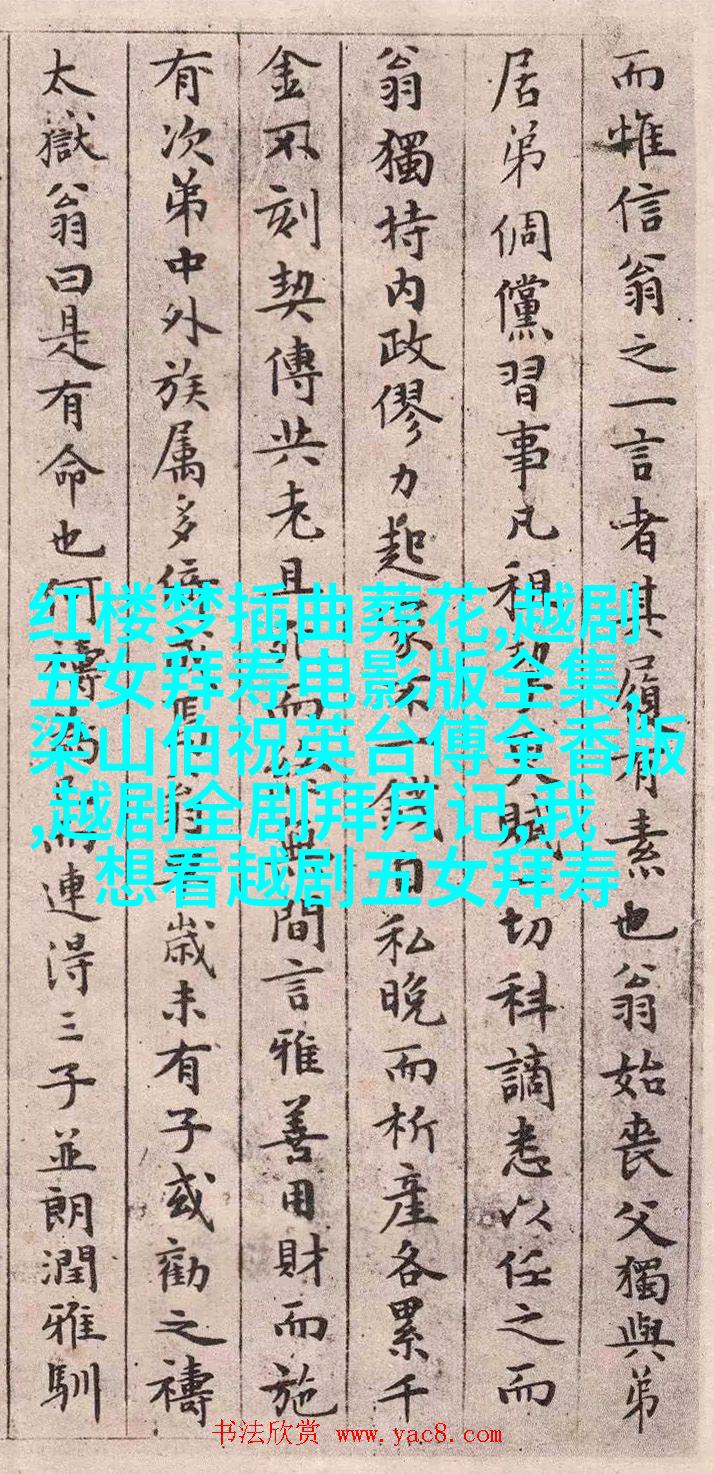 而惟信翁之一言者其有素也翁始喪父獨與弟
居弟倜儻習事凡租賦一切科謫悉以任之而
翁獨持内政僇力起家不一錢自私晚而析產各累千
金不刻契傳共老且而間言雅善用財而施
有次弟中外族属多歲未有子或勸之禱
太獄翁曰是有命也何禱而連得三子並朗潤雅馴
红楼梦插曲葬花,越剧
五女拜寿电影版全集,
梁山伯祝英台傅全香版
,越剧全剧拜月记,我
想看越剧五女拜寿
书法欣赏 www.yac8.com